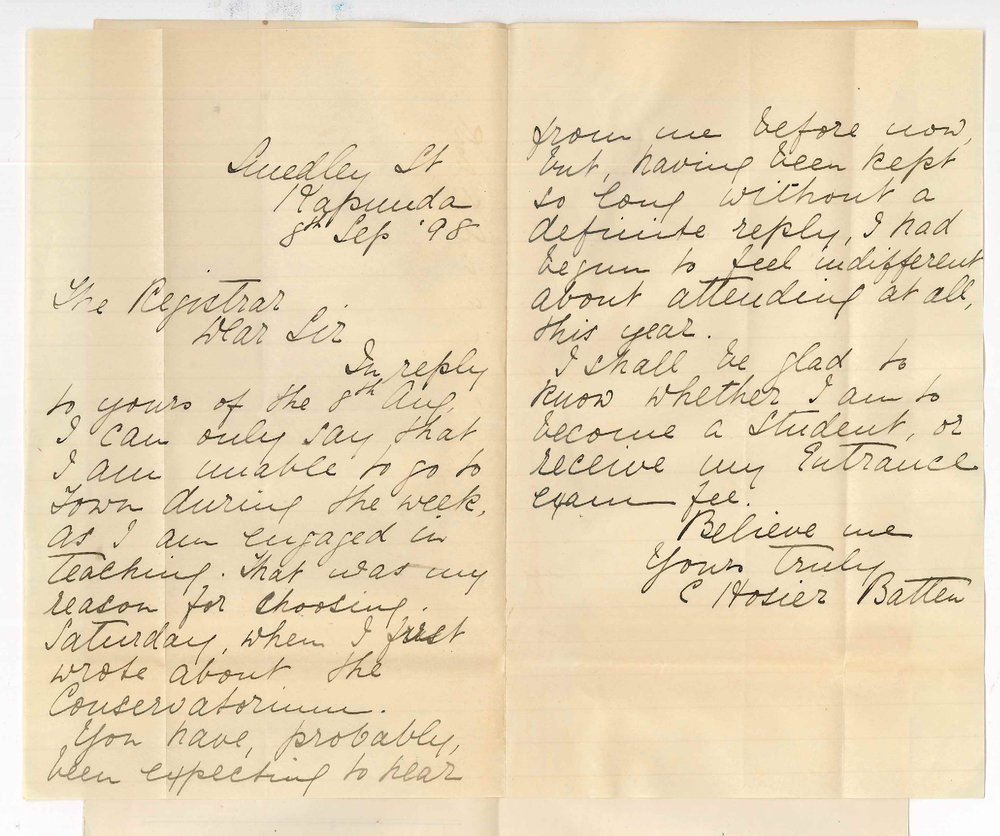 Smedley St
Kapunda
8th Sep '98
The Registrar
Dear Sir
In reply
to yours of the 8th Aug,
I can only say that
I am unable to go to
Town during the week,
as I am engaged in
teaching. That was my
reason for choosing
Saturday, when I first
wrote about the
Conservatorium.
You have, probably,
been expecting to hear
from me before now,
but, having been kept
so long without a
definite reply, I had
begun to feel indifferent
about attending at all,
this year.
I shall be glad to
know whether I am to
become a Student, or
receive my Entrance
exam fee.
Believe me
Yours truly
C Hosier Batten